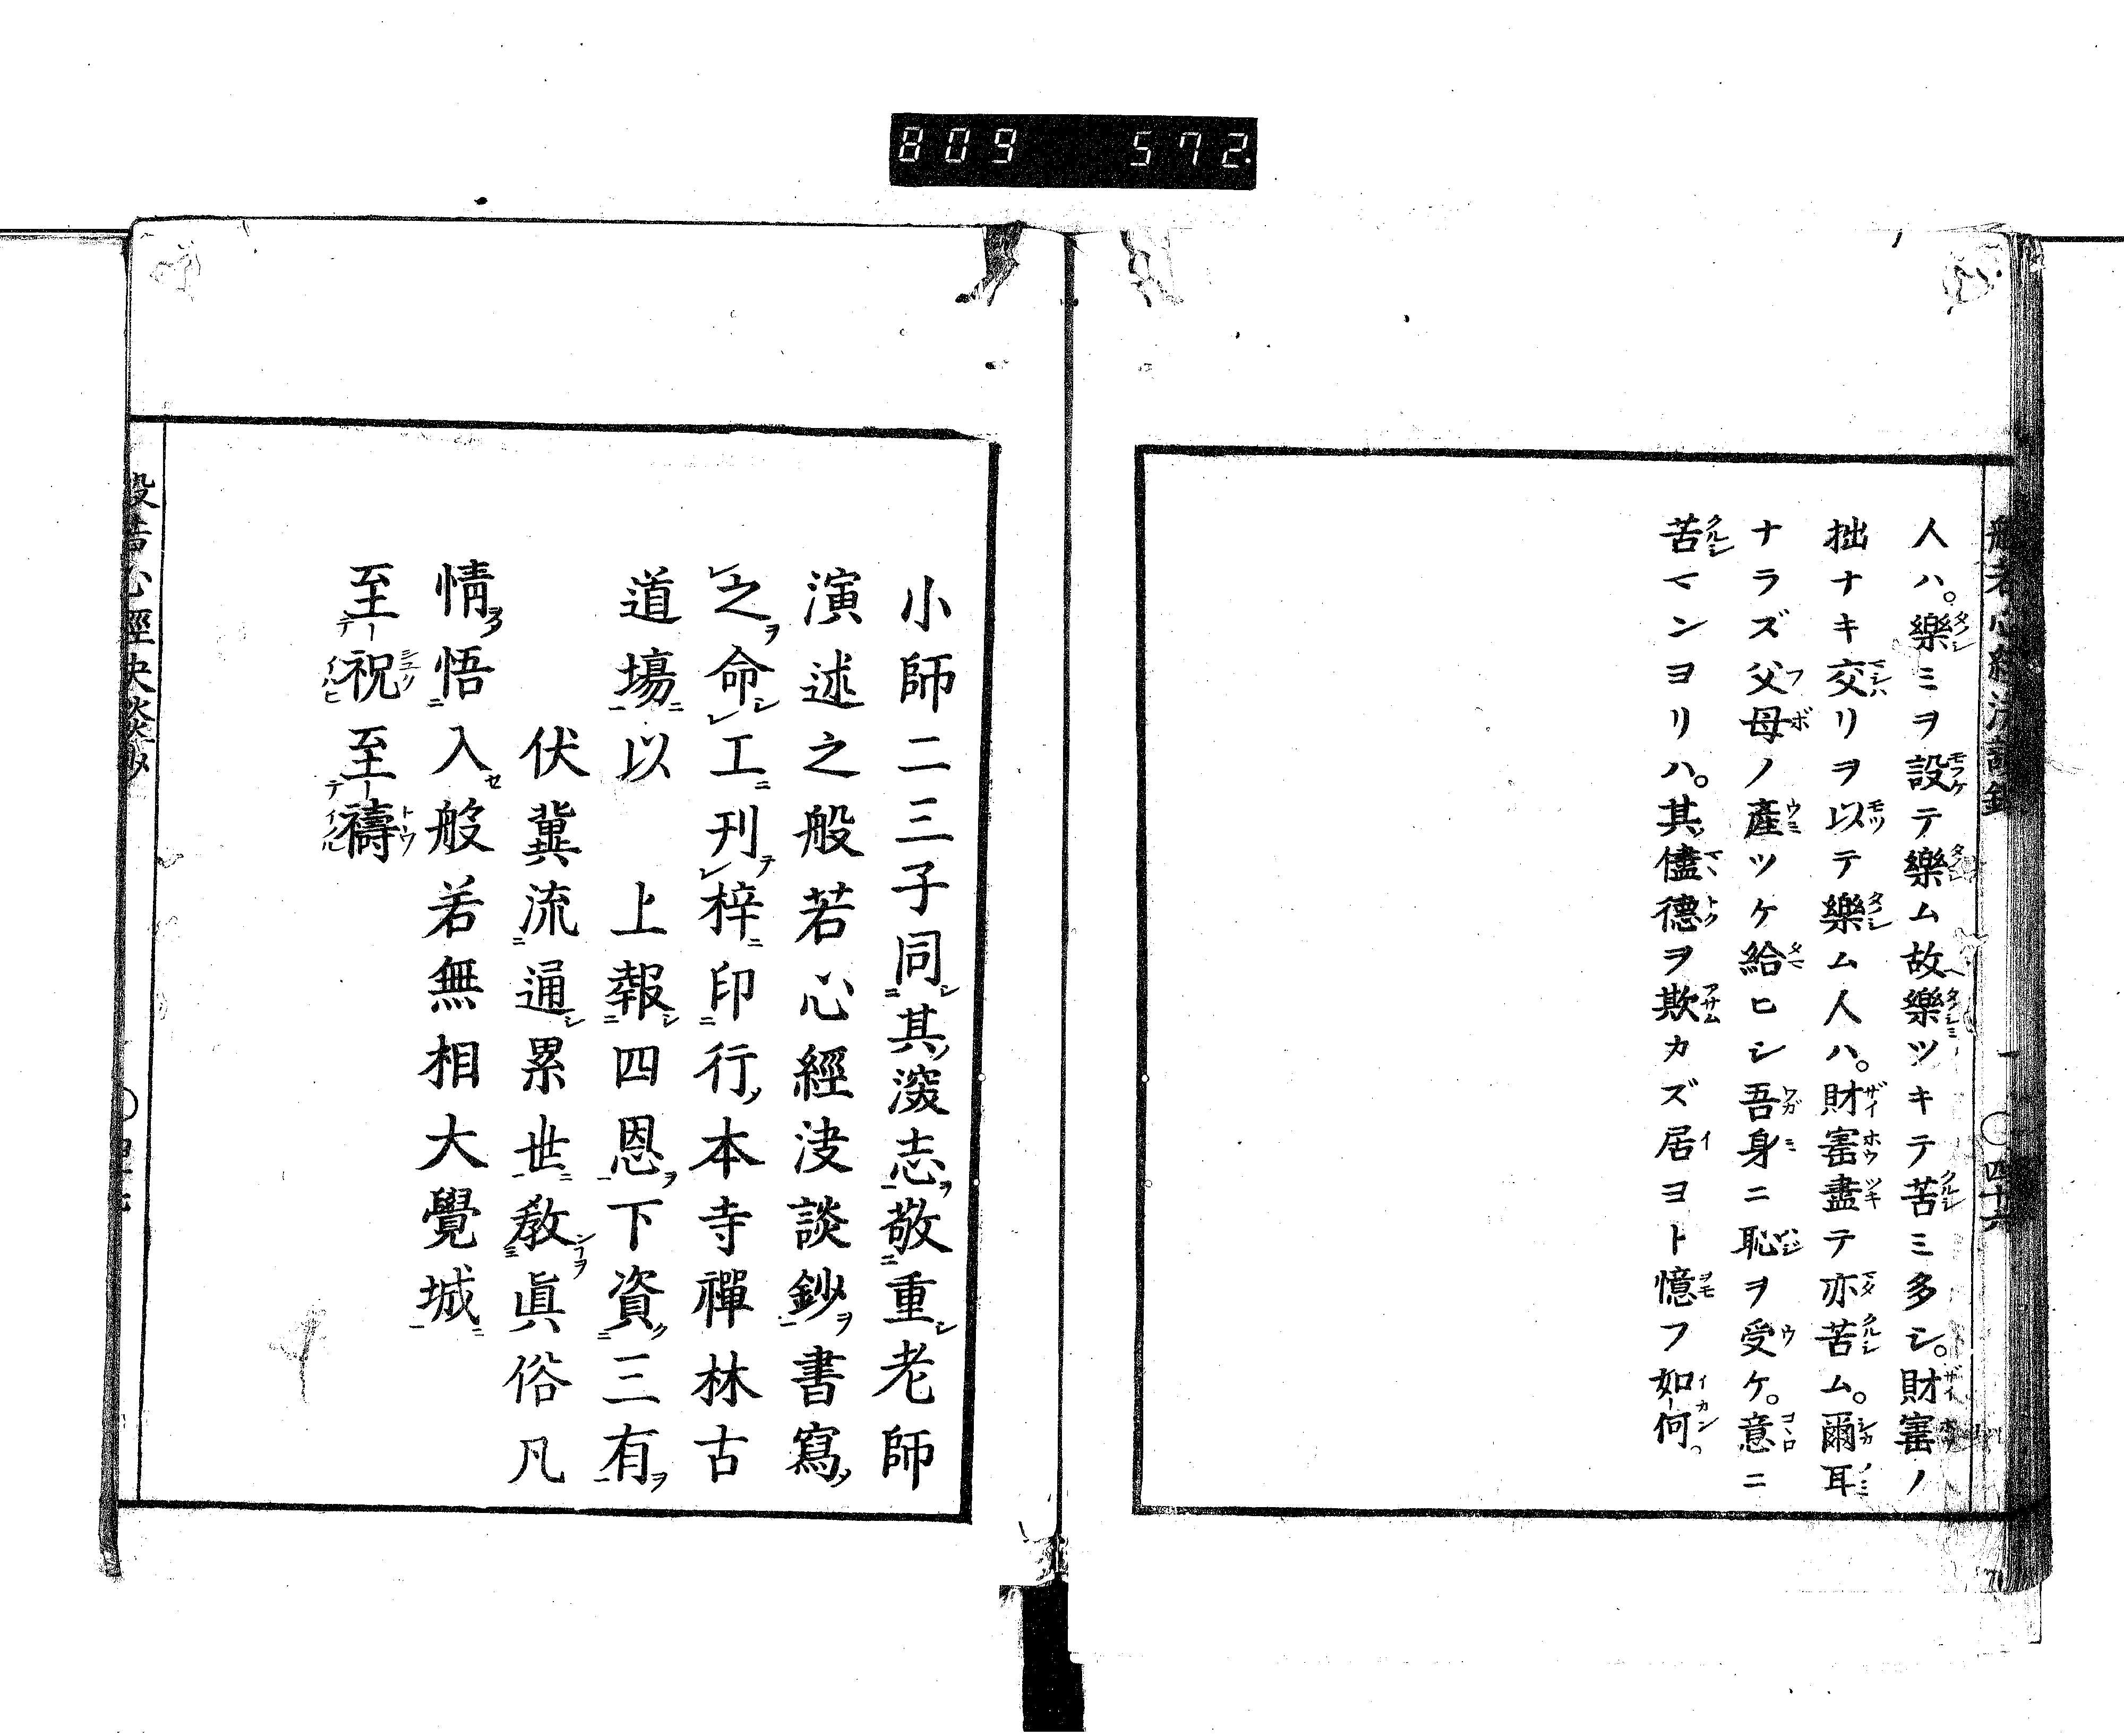 809 572
人ハ。樂ミヲ設テ樂ム故樂ツキテ苦ミ多シ。財寚ノ
拙ナキ交リヲ以テ樂ム人ハ。財寚盡テ亦苦ム。爾耳
ナラズ父母ノ產ツケ給ヒシ吾身ニ恥ヲ受ケ。意ニ
苦マンヨリハ。其儘德ヲ欺カズ居ヨト憶フ如何。
四十六
小師二三子同其深志敬重老師
演述之般若心經決談鈔書寫
之命工刊梓印行本寺禪林古
道場以　上報四恩下資三有
伏冀流通累世教眞俗凡
情悟入般若無相大覺城
至祝至禱
般若心經決談鈔